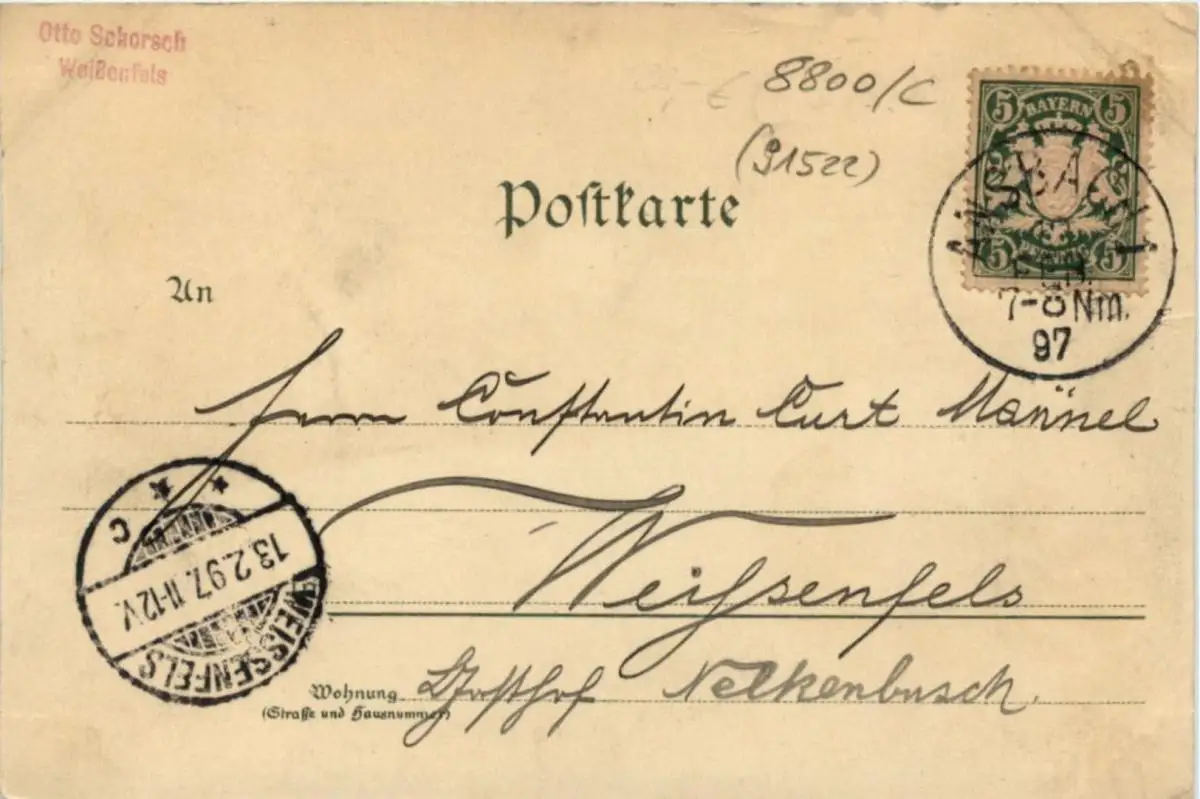 Otto Schorsch
Weißenfels
8800/C
(91522)
5 BAYERN 5
5 PFENNIG 5
ANSBACH 1
FEB.
7-8 Nm.
97
Postkarte
An
Herrn Constantin Curt Männel
Weißenfels
Wohnung Gasthof Nelkenbusch.
(Straße und Hausnummer)
C
13.2.97. 11-12V.
WEISSENFELS